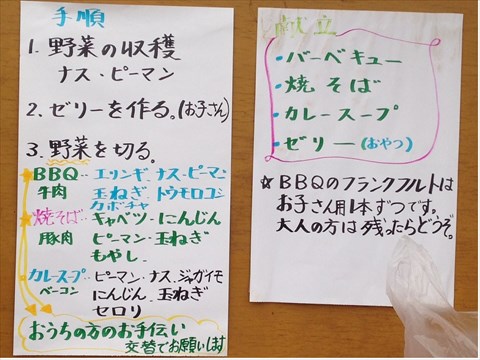 手順
1. 野菜の収穫
ナス・ピーマン
2. ゼリーを作る。(お子さん)
3. 野菜を切る。
★BBQ‥エリンギ ナス・ピーマン
牛肉 玉ねぎ トウモロコシ
カボチャ
★焼そば‥キャベツ・にんじん
豚肉 ピーマン・玉ねぎ
もやし
カレースープ‥ピーマン・ナス ジャガイモ
ベーコン にんじん 玉ねぎ
セロリ
おうちの方のお手伝い
交替でお願いします
献立
・バーベキュー
・焼そば
・カレースープ
・ゼリー(おやつ)
☆BBQのフランクフルトは
お子さん用1本ずつです。
大人の方は残ったらどうぞ。